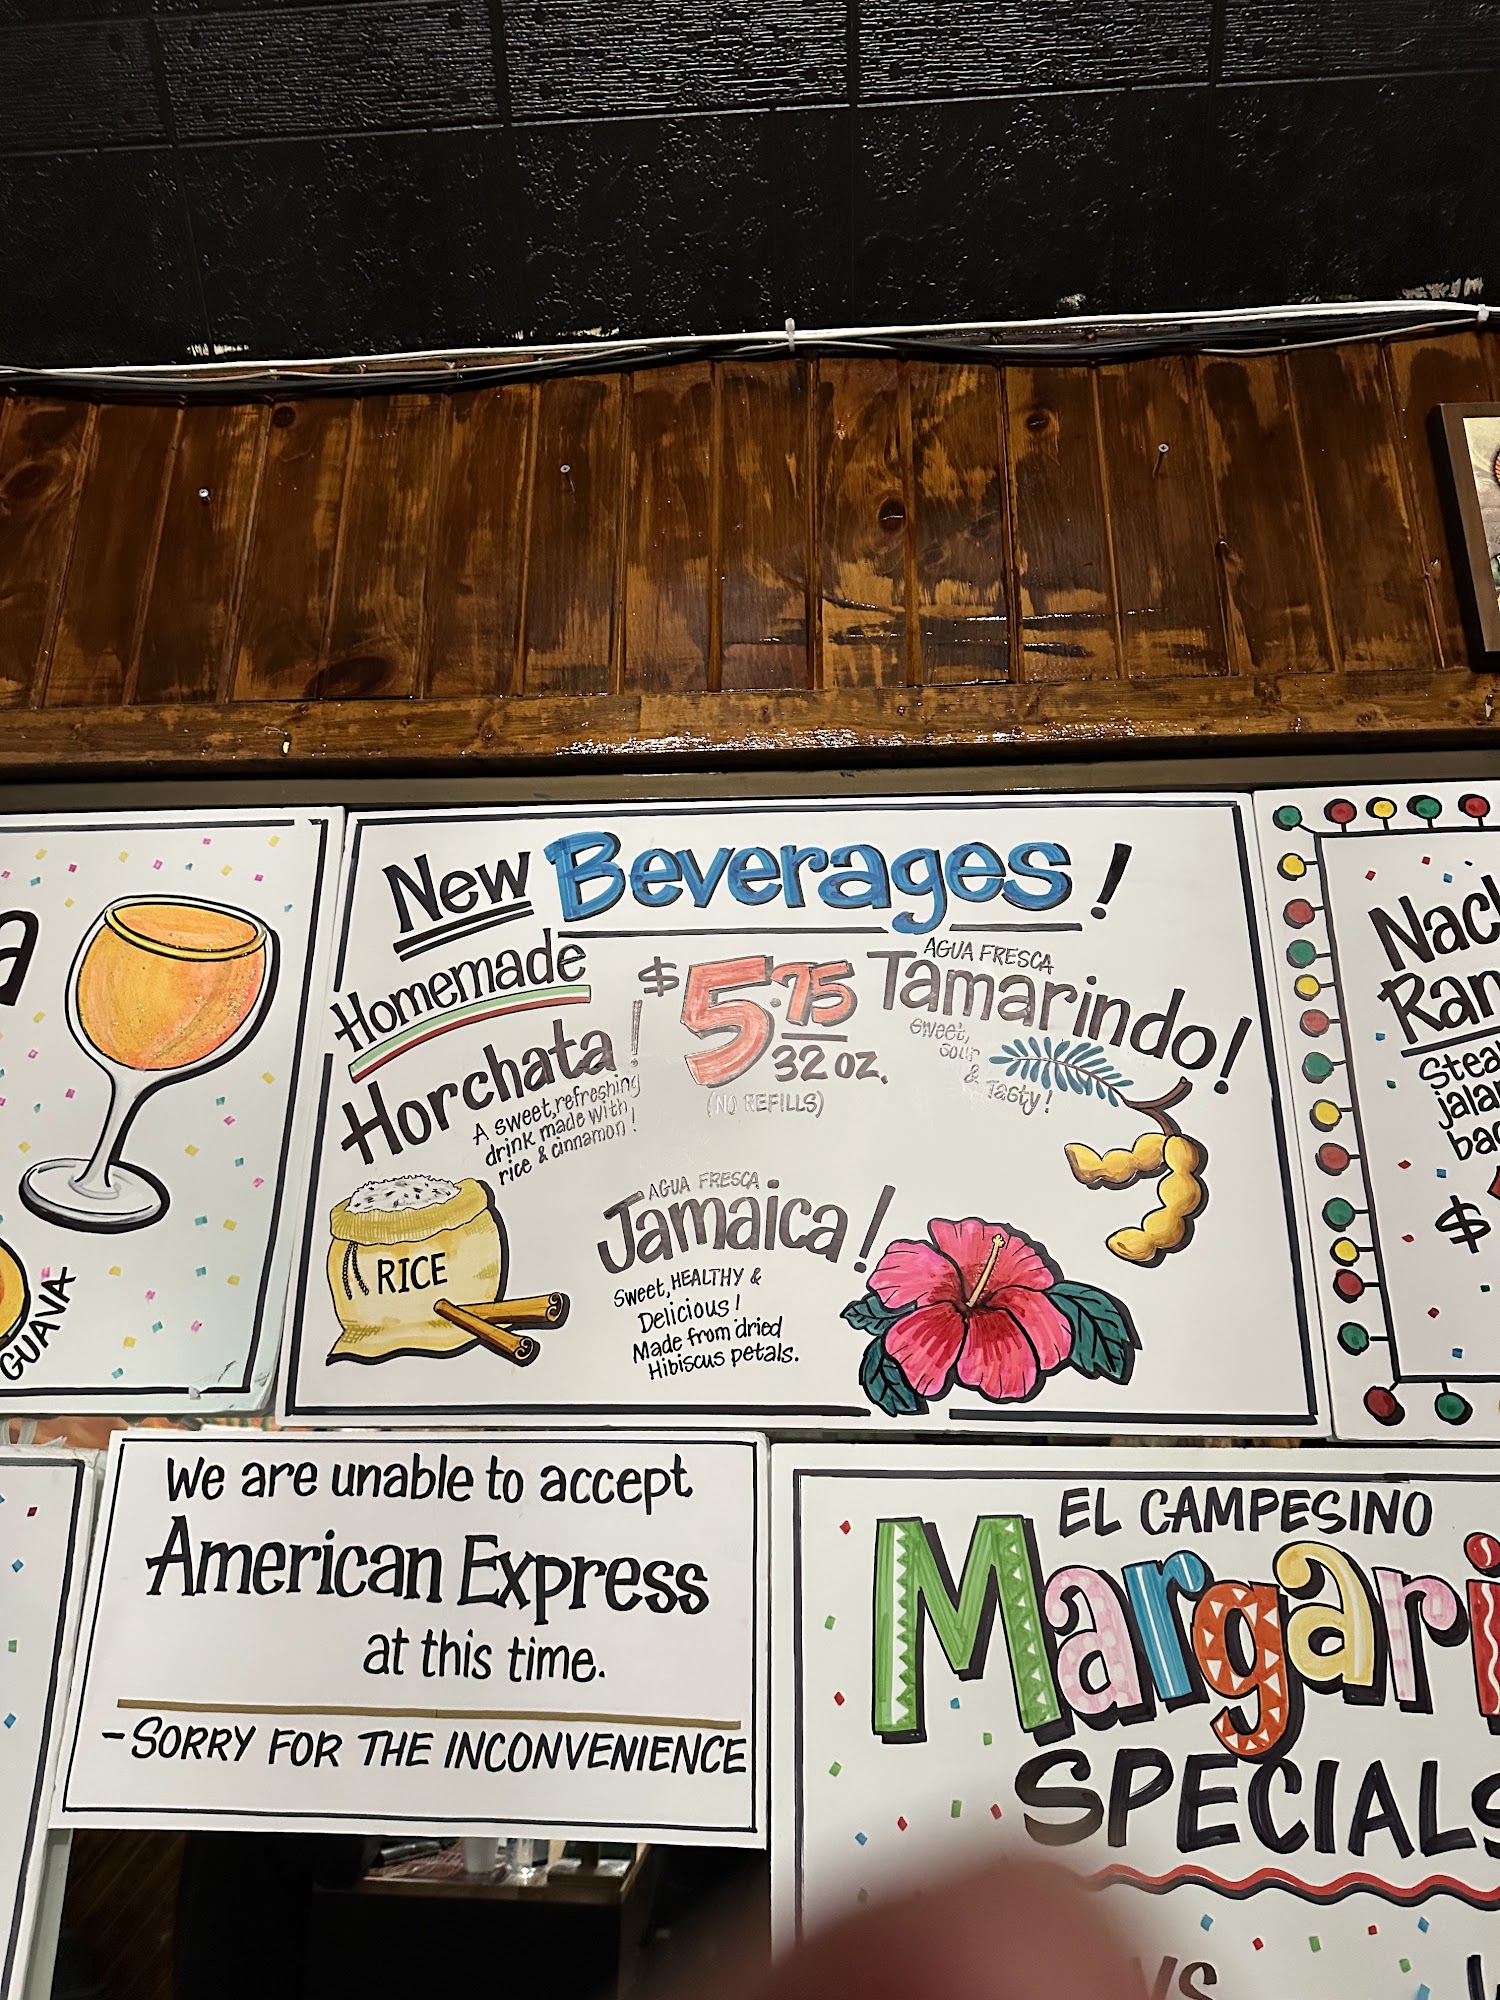 New Beverages!
Homemade
Horchata!
A sweet, refreshing
drink made with
rice & cinnamon!
RICE
$5.75
32 oz.
(NO REFILLS)
AGUA FRESCA
Tamarindo!
Sweet,
Sour
& Tasty!
AGUA FRESCA
Jamaica!
Sweet, HEALTHY &
Delicious!
Made from dried
Hibiscus petals.
GUAVA
Stea
jala
$
We are unable to accept
American Express
at this time.
-SORRY FOR THE INCONVENIENCE
EL CAMPESINO
Margari
SPECIALS